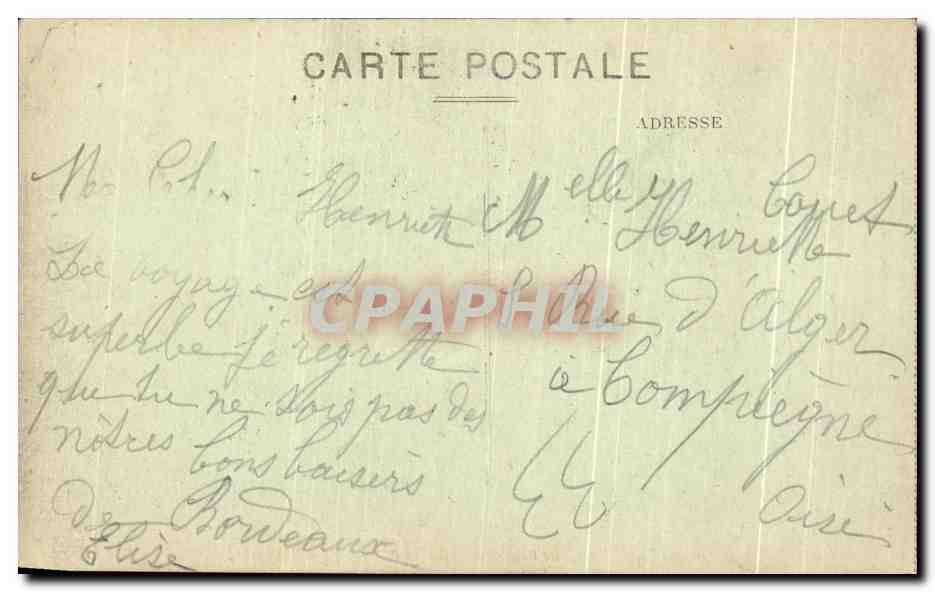 CARTE POSTALE
ADRESSE
Henriette
Le voyage est
superbe je regrette
que tu ne sois pas des
nôtres bons baisers
de Bordeaux
Elise
Melle Henriette
Rue d'Alger
à Compiègne
Oise
CPAPHIL